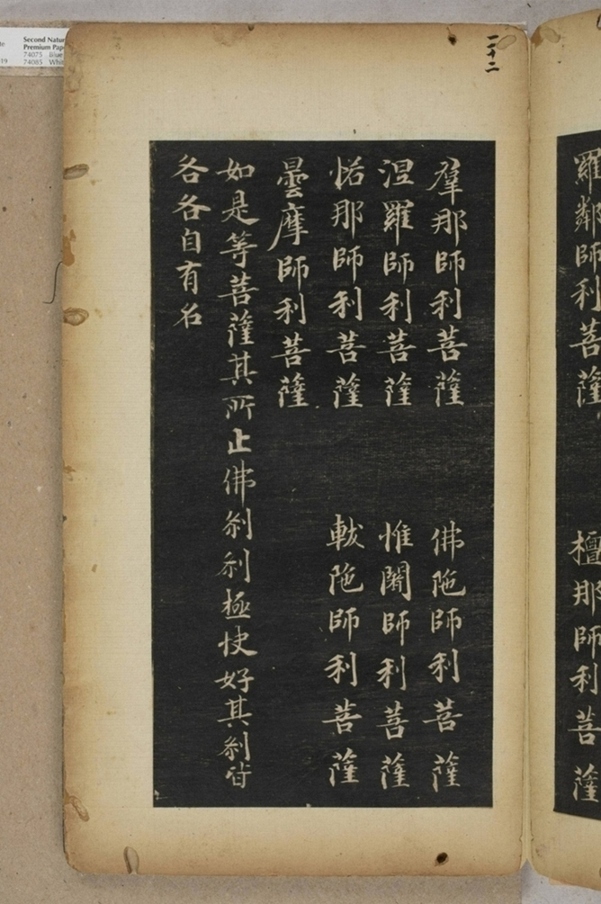 羅鄰師利菩薩　檀那師利菩薩
羣那師利菩薩　佛陁師利菩薩
涅羅師利菩薩　惟闍師利菩薩
恬那師利菩薩　軷陁師利菩薩
曇摩師利菩薩
如是等菩薩其所止佛剎剎極快好其剎皆
各各自有名
二十二
Second Natu
Premium Pap
74075 Blue
74085 Whit
19